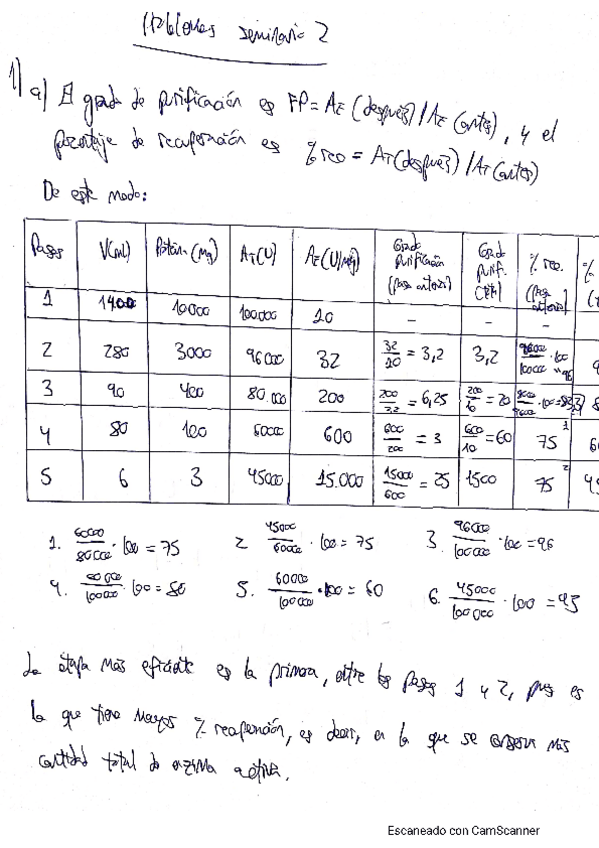 Problemas seminario 2
1) a) El grado de purificación es FP = AE (después) / AE (antes), y el
porcentaje de recuperación es % rec = AT (después) / AT (antes)
De este modo:
Pasos V(mL) Proteína (mg) AT (U) AE (U/mg) Grado purificación (paso anterior) Grado purif. % rec. (paso anterior) %
1 1400 10000 100000 10 - - -
2 280 3000 96000 32 32/10 = 3,2 3,2 96000/100000 · 100 = 96 9
3 90 400 80.000 200 200/32 = 6,25 200/10 = 20 80000/96000 · 100 = 83,3 8
4 80 100 60000 600 600/200 = 3 600/10 = 60 75 1 60
5 6 3 45000 15.000 15000/600 = 25 1500 75 2 45
1. 60000/80000 · 100 = 75 2 45000/60000 · 100 = 75 3. 96000/100000 · 100 = 96
4. 80000/100000 · 100 = 80 5. 60000/100000 · 100 = 60 6. 45000/100000 · 100 = 45
La etapa más eficiente es la primera, entre los pasos 1 y 2, pues es
la que tiene mayor % recuperación, es decir, en la que se conserva más
cantidad total de enzima activa.
Escaneado con CamScanner